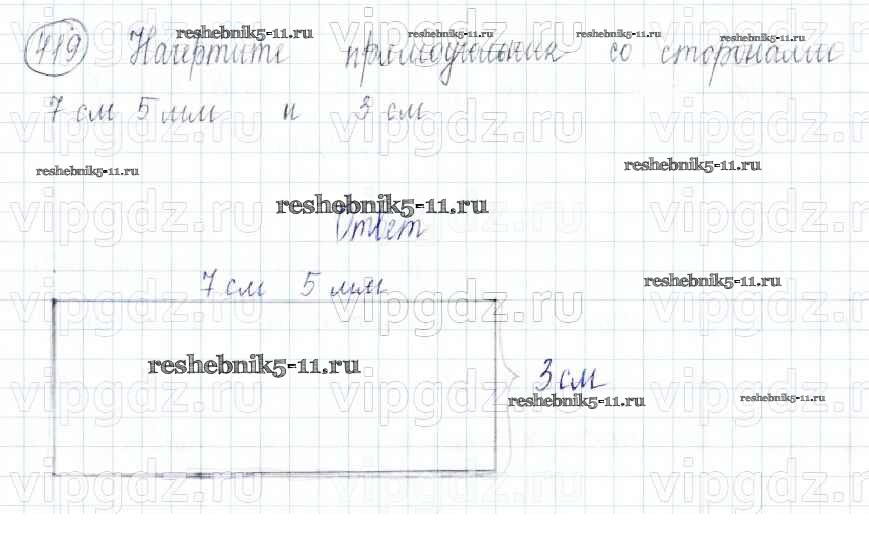 reshebnik5-11.ru reshebnik5-11.ru reshebnik5-11.ru reshebnik5-11.ru
419 Начертите прямоугольник со сторонами
vipgdz.ru vipgdz.ru vipgdz.ru
7 см 5 мм и 3 см
vipgdz.ru vipgdz.ru vipgdz.ru
reshebnik5-11.ru reshebnik5-11.ru
reshebnik5-11.ru
vipgdz.ru vipgdz.ru vipgdz.ru
Ответ
7 см 5 мм reshebnik5-11.ru
vipgdz.ru vipgdz.ru vipgdz.ru
reshebnik5-11.ru
3 см
reshebnik5-11.ru reshebnik5-11.ru
vipgdz.ru vipgdz.ru vipgdz.ru
vipgdz.ru vipgdz.ru vipgdz.ru